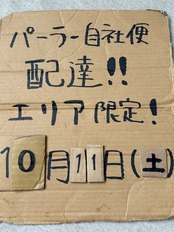 パーラー自社便
配達!!
エリア限定!
10月11日(土)